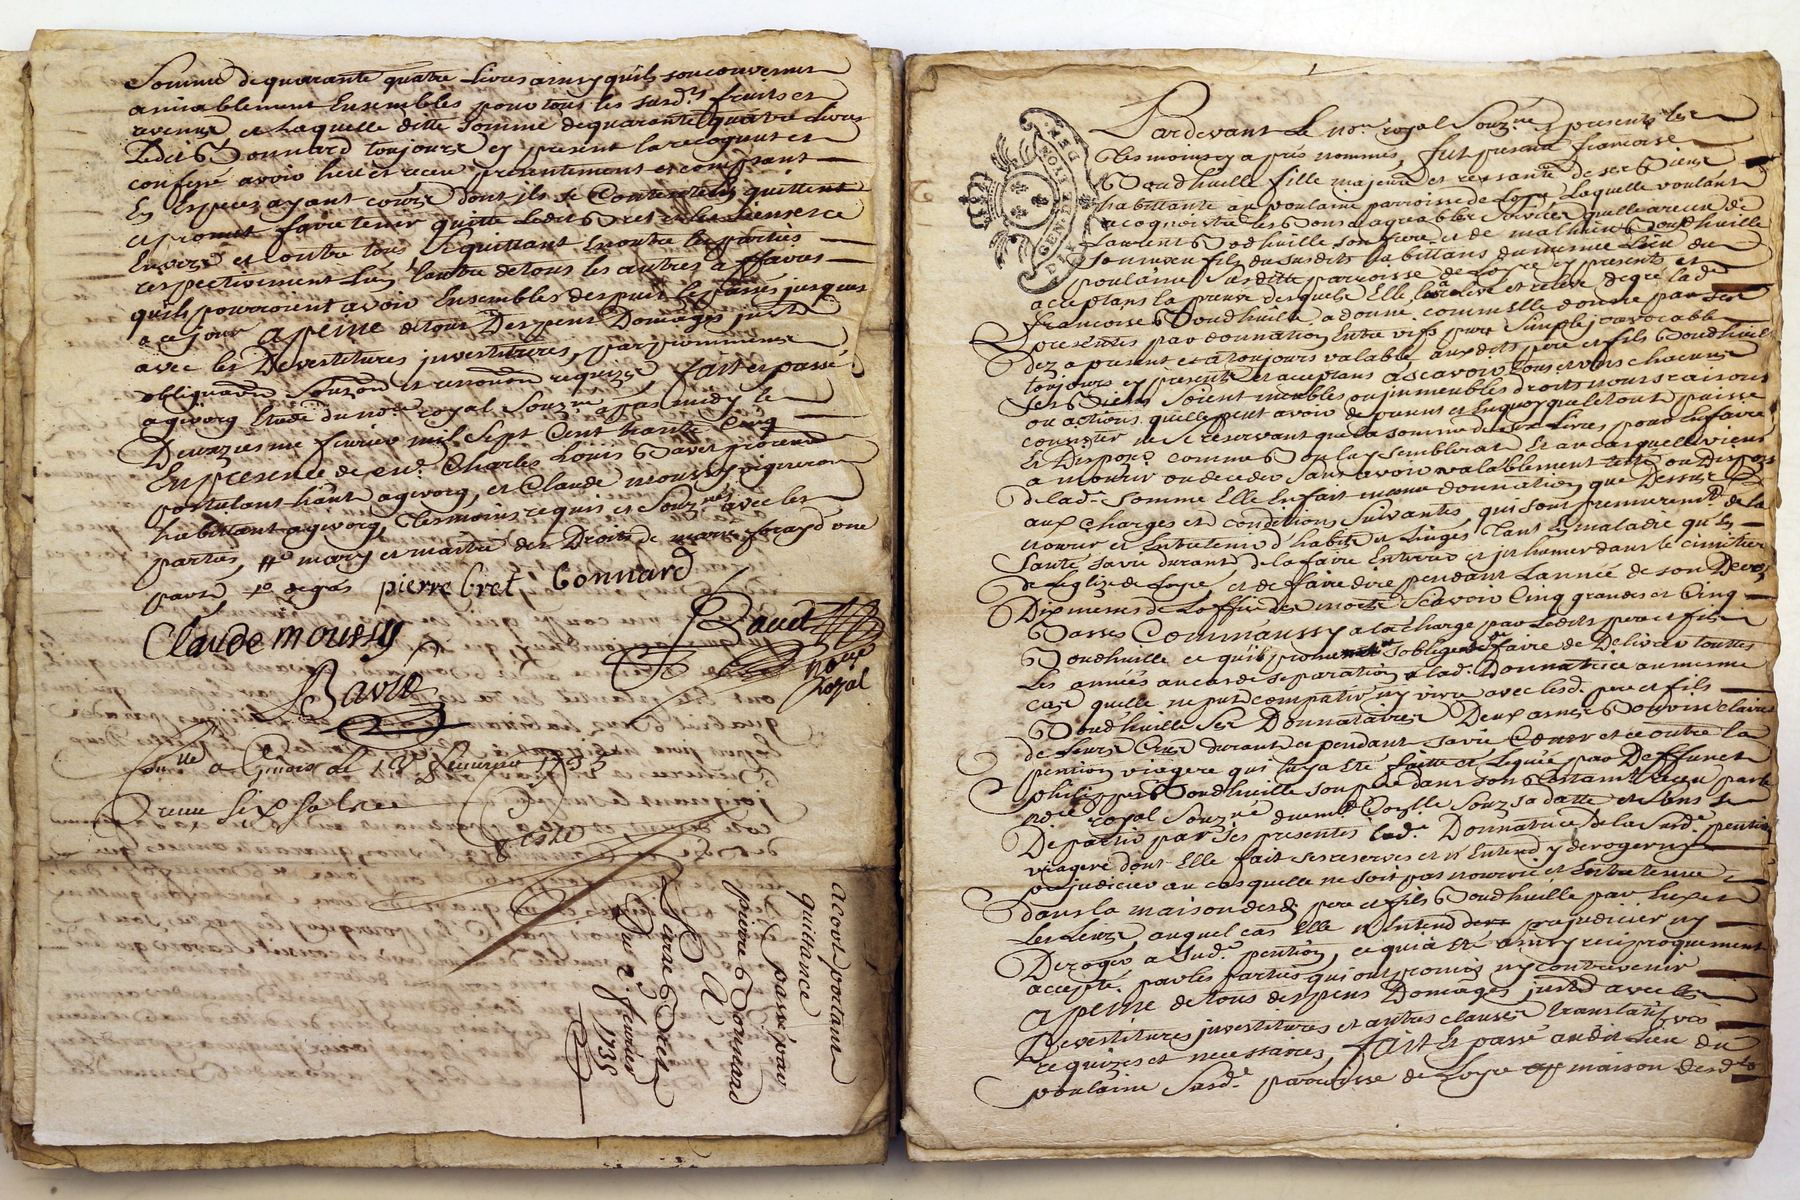 Somme de quarante quatre Livres ainsy quils sont convenus
amiablement Ensembles pour tous les susd.s fruits et
et Laquelle ditte Somme de quarante quatre Livres
Ledit Bonnard toujours cy present la recognut et
confessé avoir heu et receu presentement et comptant
En Especes ayant cours dont ils se Contentent quittent
et promet faire tenir quitte Ledit
Envers et contre tous, Et quittant Enoutre les parties
respectivement Lun Lautre de tous les autres affaires
quils pourroient avoir Ensembles despuis le passé jusques
a ce jour a peine de tous Despens Domages
avec les Devestitures investitures, par
obligaon Soumon et renonon requizes fait et passé
a givorg Etude du nore royal Souz.né apres midy le
Deuxiesme fevrier mil Sept Cent trente Cinq
En presence de Charles Louis Bavet
postulant a givorg, et Claude moussy vigneron
habittant a givorg, tesmoins requis et Souz.nés avec les
parties, mary et maitre des Droits de marie forayd une
pierre bret bonnard
Claude moussy
Bavet
Bavet
no.re
royal
a Givors le fevrier 1735
receu six sols
acord portant
quittance
passé par
pierre Bonnard
A
pierre Bret
Du 2. fevrier
1735
GEN. DE LYON
Pardevant Le no.re royal Souz.né et presents les
tesmoins cy apres nommés, fut presente francoise
Boudhuille fille majeure et
habittante au poulaine parroisse de Loyre Laquelle voulant
recognoistre les Bons et agreables services quelle a receu de
Laurent Boudhuille son frere et de mathieu Boudhuille
son neveu fils du susdit habittans du mesme Lieu du
poulaine Susditte parroisse de Loyre cy presents et
acceptans
francoise Boudhuille a donné, comme elle donne par ses
presentes par donnation Entre vifs pure Simple jrrevocable
dez a present et a toujours valable auxdits pere et fils Boudhuille
toujours cy presents et acceptans a scavoir tous et uns chacuns
ses Biens soient meubles ou jmmeubles droits noms raisons
ou actions quelle peut avoir de present et en quoy que le tout puisse
consister ne se reservant que la somme de Livres pour En faire
Et Disposer comme Bon luy semblerat Et au cas quelle vient
a mourir ou deceder sans avoir valablement testé ou Disposé
de lad.e somme Elle En fait donnation que Dessus
aux Charges et conditions Suivantes, qui sont premierement de la
nourir et Entretenir d'habits et Linges tant En maladie quEn
Santé Sa vie durant de la faire Enterrer et jnhumer dans le cimetier
de Leglize de Loyre, et de faire dire pendant Lannée de son Deces
Dix messes de Loffice des morts Scavoir Cinq grandes et Cinq
Basses Comme aussy a la Charge par Lesdits pere et fils
Boudhuille ce quils s'obligent de faire de Delivrer touttes
Les années au cas de separation a lad.e Donnatrice au mesme
cas quelle ne put compatir ny vivre avec lesd. pere et fils
Boudhuille ses Donnataires Deux Bon vin clairet
de Leurs Crus durant cependant sa vie Comme et ce outre la
pention viagere qui luy a Eté faitte et Leguée par Deffunct
philippes Boudhuille son pere dans son testam.t receu par le
nore royal Souz.né Souz sa datte et sans se
Departir par ses presentes lad.e Donnatrice de la Susd.e pention
viagere dont Elle fait ses reserves et n'Entend y deroger ny
prejudicier au cas quelle ne soit pas nourrie et Entretenue
dans la maison desd. pere et fils Boudhuille par Luy et
Les Leurs, auquel cas Elle n'Entend prejudicier ny
Deroger a Sud.e pention, ce qui a Eté ainsy reciproquement
accepté par les parties qui ont promis ny contrevenir
a peine de tous despens Domages avec les
Devestitures jnvestitures et autres clauses translatifves
requizes et necessaires, fait et passé audit Lieu du
poulaine Susd.e parroisse de Loyre maison desdts